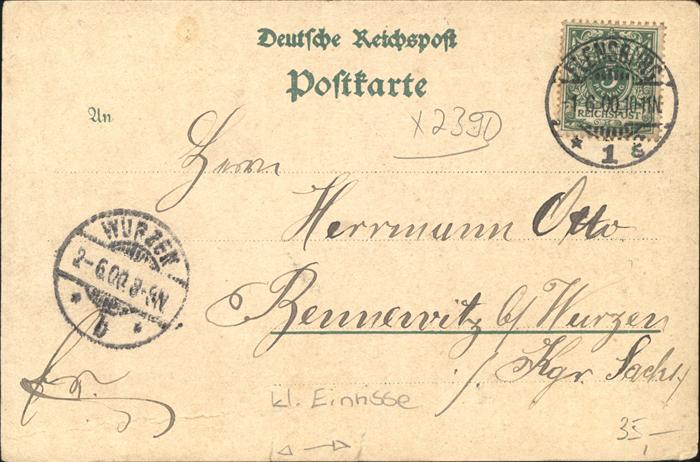 Deutsche Reichspost
Postkarte
An
FLENSBURG
-1.6.00.10-11N
* 1 s
REICHSPOST
x2390
Herrn
Herrmann Otto
WURZEN
2-6.00.8-9N
* b *
Bennewitz b/ Wurzen
/. Kgr. Sachs.
fr.
kl. Einrisse
35,-